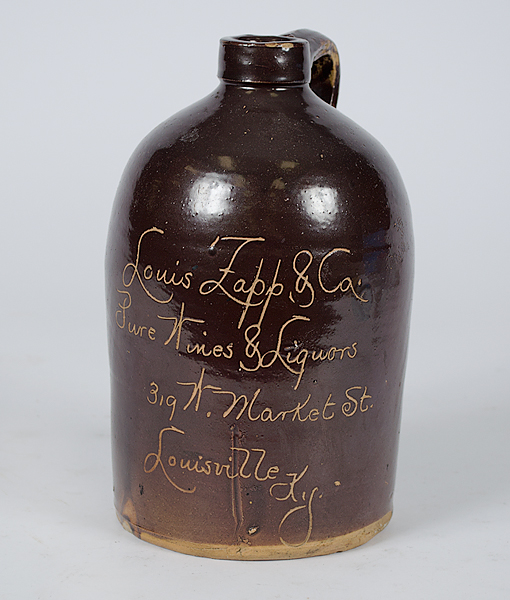 Louis Zapp & Co.
Pure Wines & Liquors
319 W. Market St.
Louisville Ky.